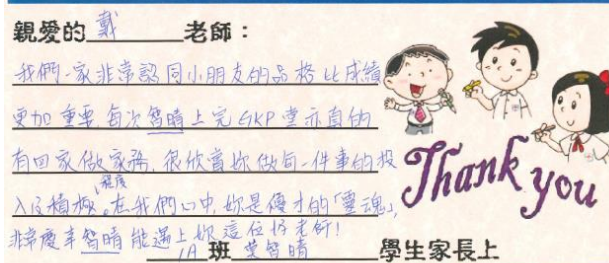 親愛的 戴 老師：
我們一家非常認同小朋友的品格比成績
更加重要，每次智晴上完GKP堂亦真的
有回家做家務，很欣賞妳做每一件事的投
入及積極程度。在我們心中，妳是優才的「靈魂」，
非常慶幸智晴能遇上妳這位好老師！
1A 班 智晴 學生家長上
Thank you